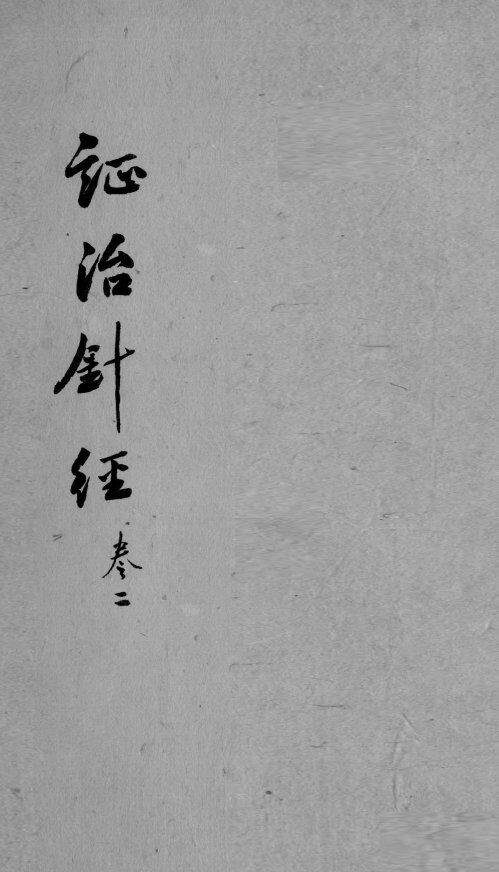 証治針經
卷二